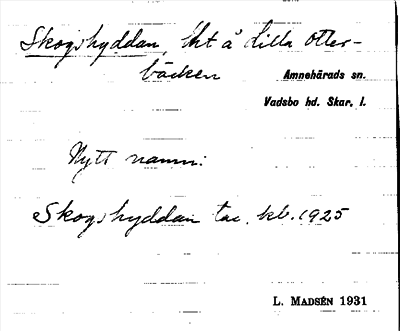 Skogshyddan, lht å Lilla Otter-
bäcken
Amnehärads sn.
Vadsbo hd. Skar. l.
Nytt namn:
Skogshyddan kb. 1925
L. MADSÉN 1931